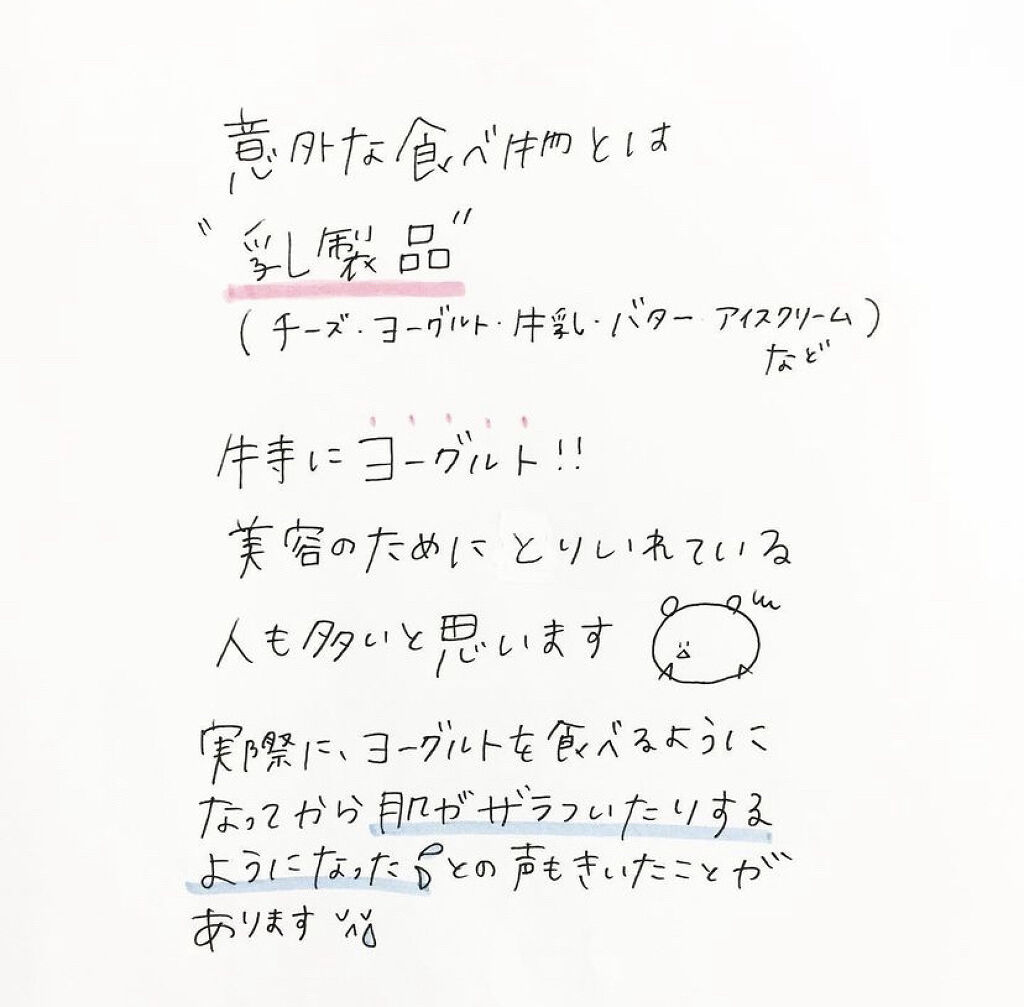 意外な食べ物とは
"乳製品"
(チーズ・ヨーグルト・牛乳・バター・アイスクリーム)
など
特にヨーグルト!!
美容のためにとりいれている
人も多いと思います
実際に、ヨーグルトを食べるように
なってから肌がザラついたりする
ようになったとの声もきいたことが
あります